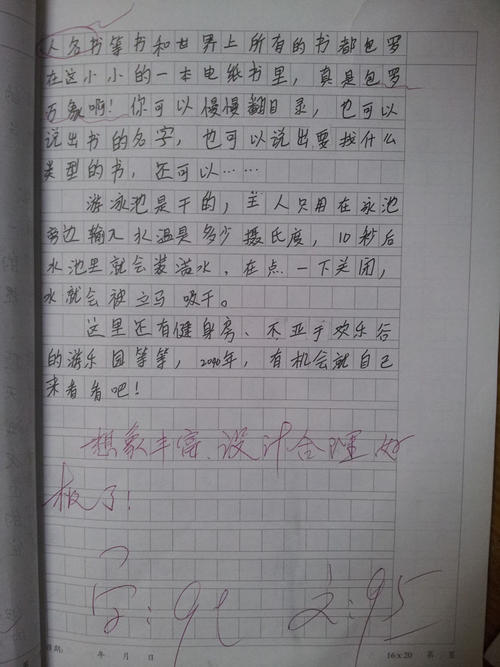 人名书等书和世界上所有的书都包罗
在这小小的一本电纸书里，真是包罗
万象啊！你可以慢慢翻目录，也可以
说出书的名字，也可以说出要找什么
类型的书，还可以……
游泳池是干的，主人只用在泳池
旁边输入水温具多少摄氏度，10秒后
水池里就会装满水，在点一下关闭，
水就会被立马吸干。
这里还有健身房、不亚于欢乐谷
的游乐园等等，2040年，有机会就自己
来看看吧！
想象丰富、设计合理，好
极了！
字：91 文：95
年 月 日
16×20 第 页